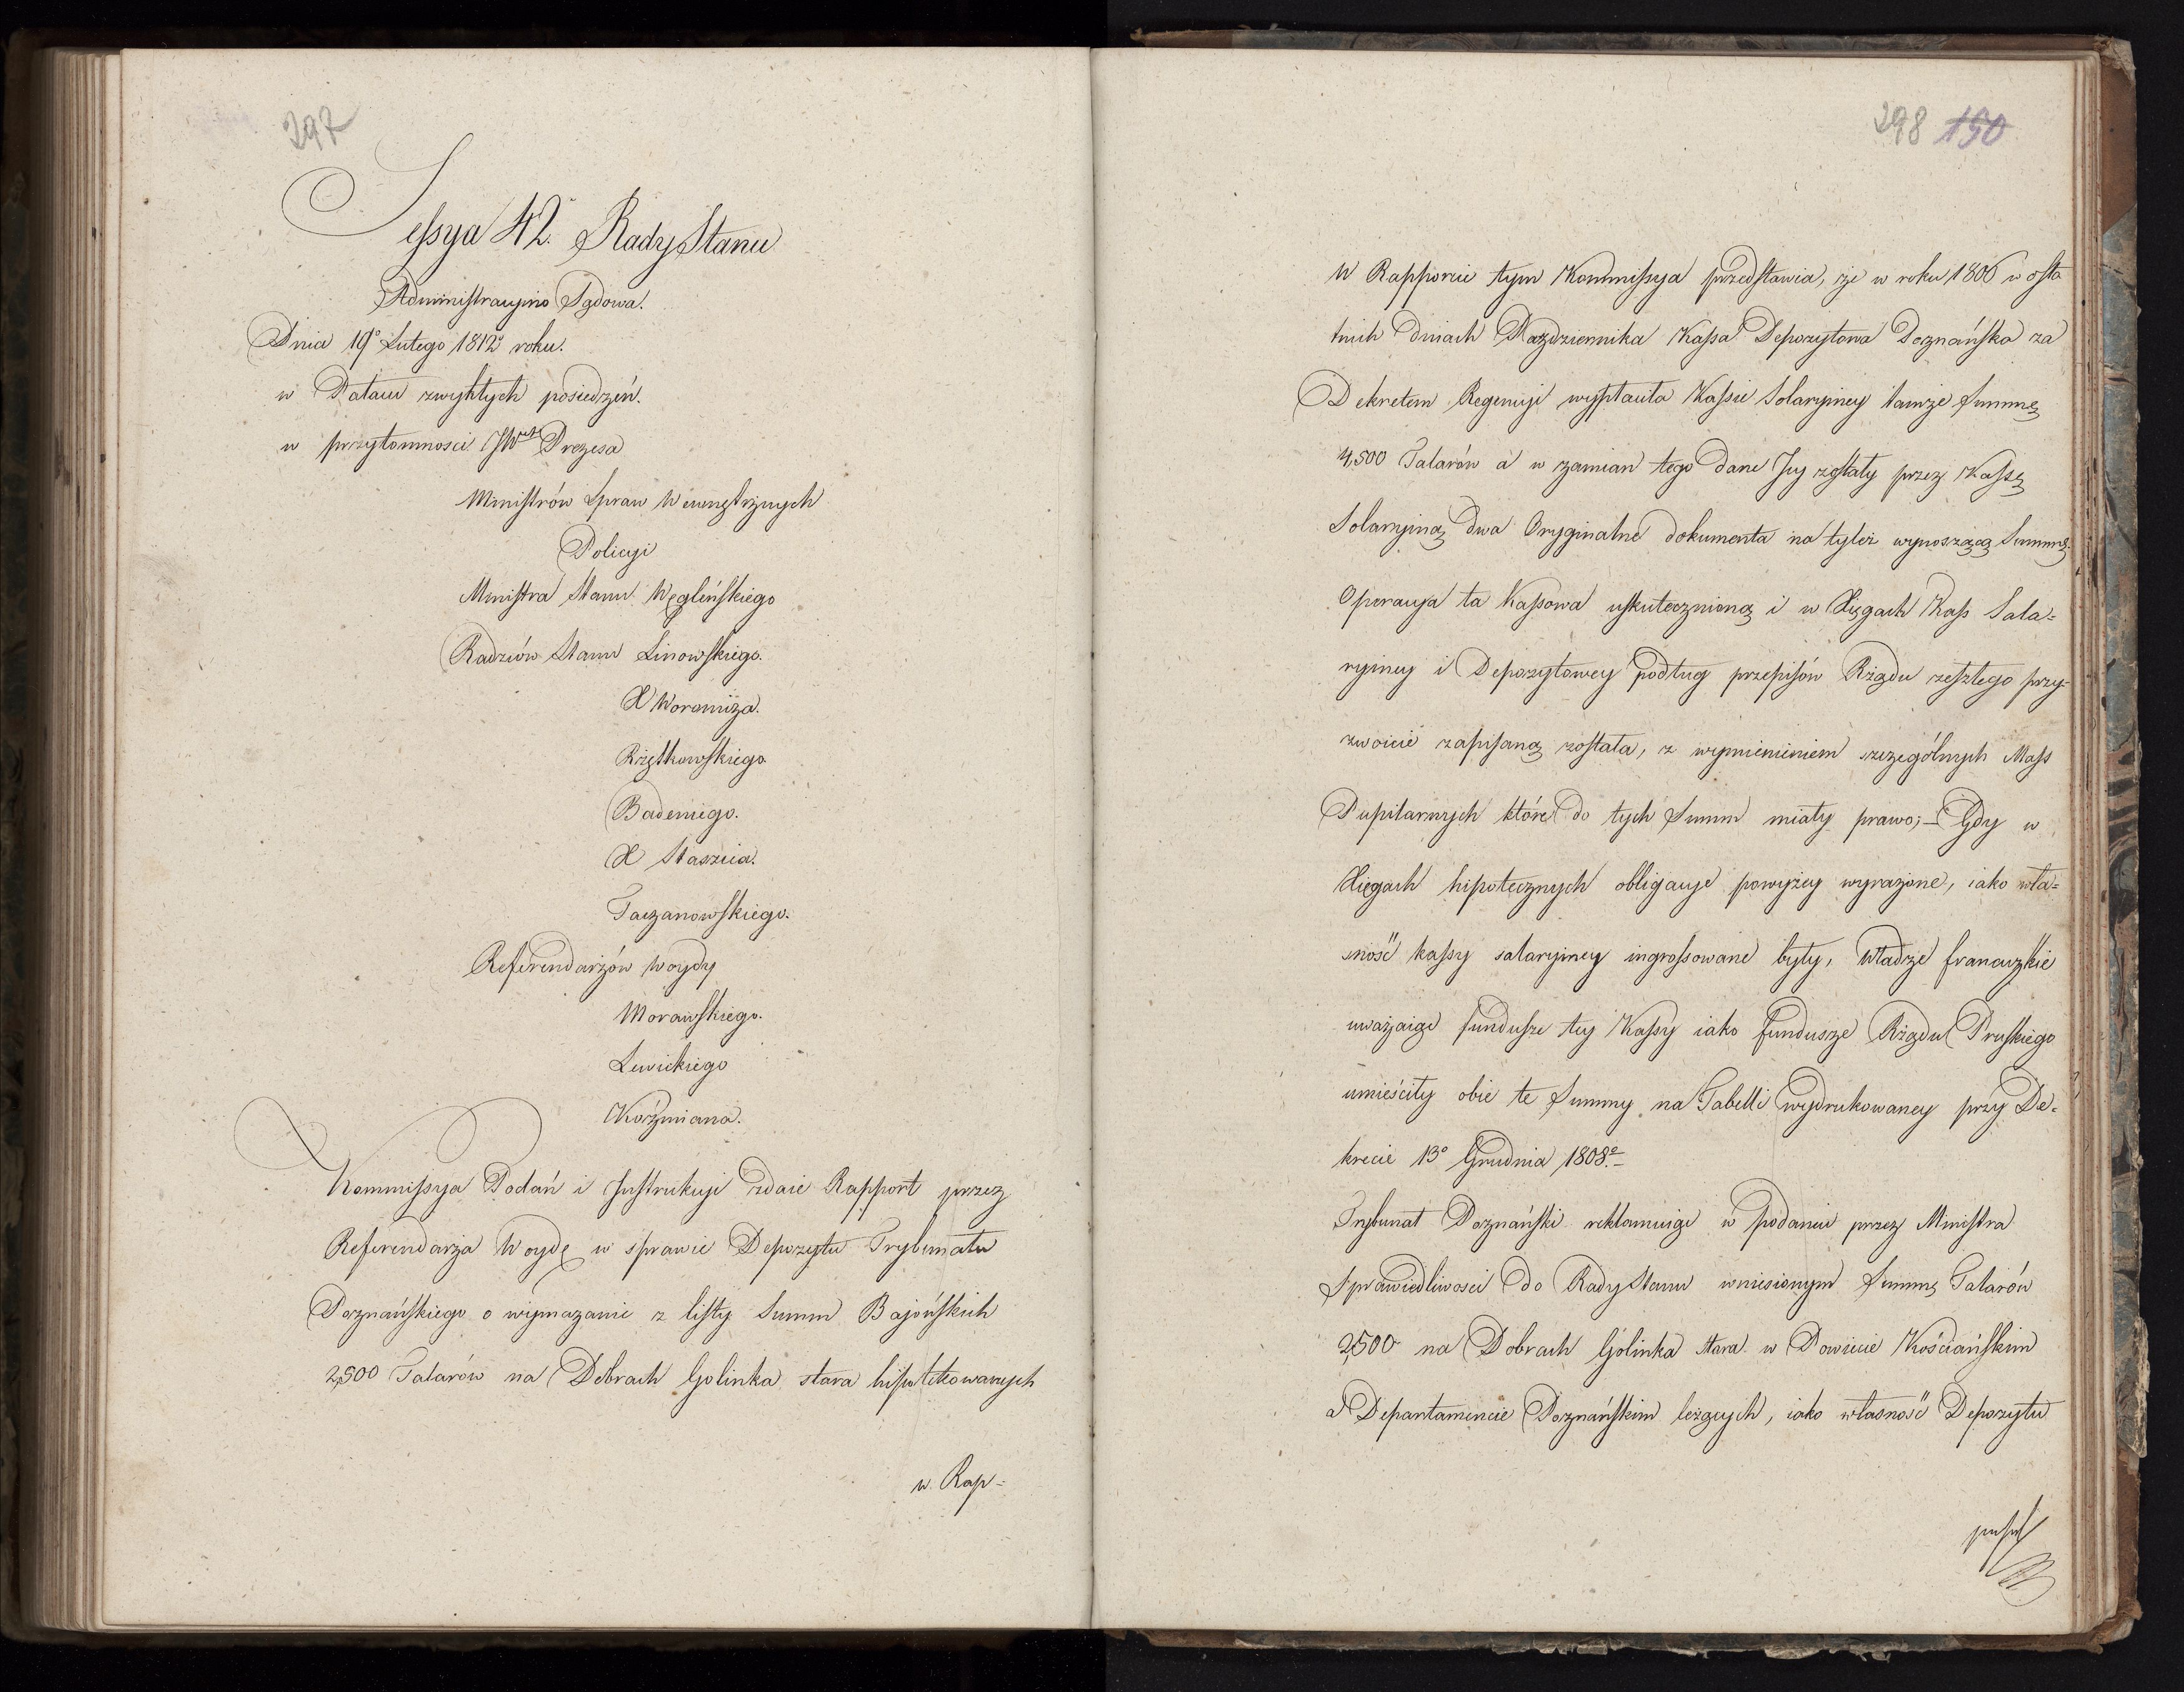 297
Sessya 42. Rady Stanu
Administracyino Sądowa.
Dnia 19° Lutego 1812° roku.
w Pałacu zwykłych posiedzeń.
w przytomnosci JWgo Prezesa
Ministrów Spraw Wewnętrznych
Policyi
Ministra Stanu Węgleńskiego
Radzców Stanu Linowskiego.
X Woronicza.
Rzętkowskiego
Badeniego.
X Staszica.
Taczanowskiego.
Referendarzów Woydy
Morawskiego.
Lewickiego
Kożmiana.
Kommissya Podań i Instrukcyi zdaie Rapport przez
Referendarza Woydę w sprawie Depozytu Trybunału
Poznańskiego o wymazanie z listy Summ Bajońskich
2,500 Talarów na Dobrach Golinka stara hipotekowanych
w Rap=
298 150
W Rapporcie tym Kommissya przedstawia, że w roku 1806 w osta
tnich dniach Pazdziernika Kassa Depozytowa Poznańska za
Dekretem Regencyi wypłaciła Kassie Solaryiney tamże summę
4,500 Talarów a w zamian tego dane Jey zostały przez Kassę
Solaryiną dwa Oryginalne dokumenta na tyleż wynoszącą Summę.
Operacya ta Kassowa uskutecznioną i w Xięgach Kass Sala=
ryiney i Depozytowey podług przepisów Rządu zeszłego przy=
zwoicie zapisaną została, z wymienieniem szczególnych Mass
Pupilarnych które do tych Summ miały prawo; – Gdy w
Xięgach hipotecznych obligacye powyżey wyrażone, iako wła=
sność kassy salaryiney ingrossowane były, Władze francuzkie
uważaiąc fundusze tey Kassy iako fundusze Rządu Pruskiego
umieściły obie te summy na Tabelli wydrukowaney przy De=
krecie 13° Grudnia 1808° –
Trybunał Poznański reklamuiąc w podaniu przez Ministra
Sprawiedliwosci do Rady Stanu wniesionym summę Talarów
2,500 na Dobrach Golinka stara w Powiecie Kościańskim
a Departamencie Poznańskim leżących, iako własność Depozytu